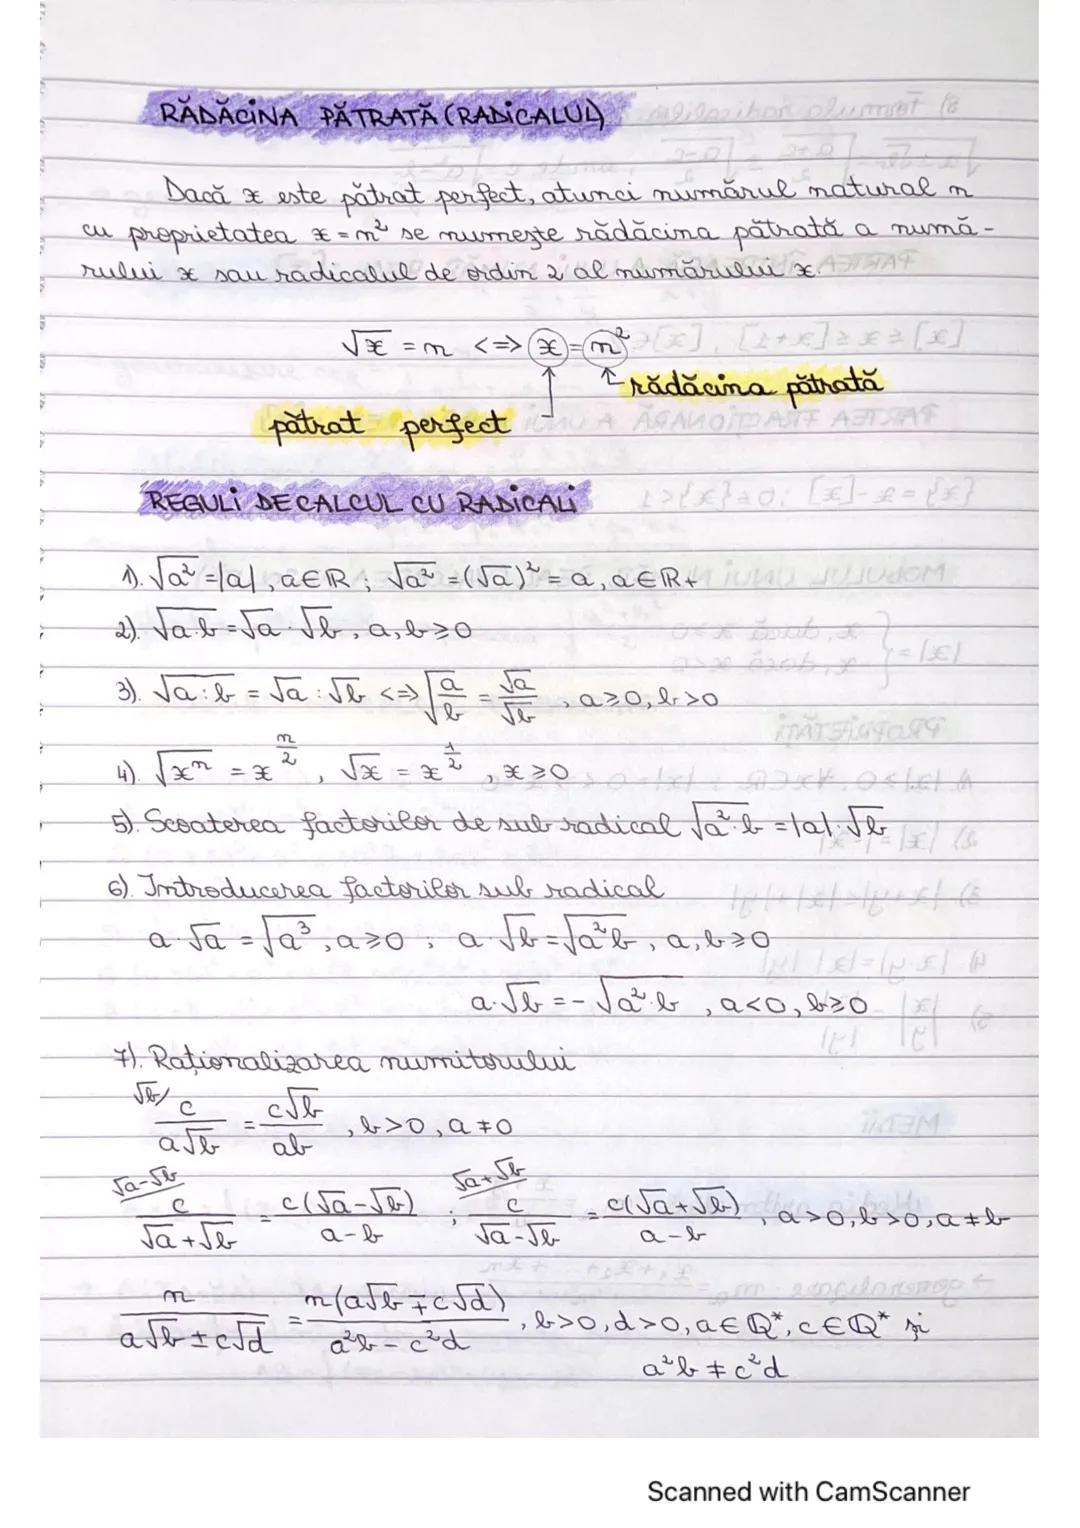 RĂDĂCINA PĂTRATĂ (RADICALUL)
Dacă x este pătrat perfect, atunci numărul natural n
cu proprietatea x = n² se numește rădăcina pătrată a numă-
rului x sau radicalul de ordin 2 al numărului x.
√x = n <=> x = n²
rădăcina pătrată
pătrat perfect
REGULI DE CALCUL CU RADICALI
1). √a² = |a|, a∈ℝ ; √a² = (√a)² = a, a∈ℝ+
2). √a·b = √a · √b, a,b ≥ 0
3). √a:b = √a : √b <=> √(a/b) = √a/√b, a ≥ 0, b > 0
4). √xⁿ = x^(n/2), √x = x^(1/2), x ≥ 0
5). Scoaterea factorilor de sub radical √a²·b = |a|·√b
6). Introducerea factorilor sub radical
a·√a = √a³, a ≥ 0 ; a·√b = √a²b, a,b ≥ 0
a·√b = -√a²·b, a<0, b≥0
7). Raționalizarea numitorului
√b/ c/(a√b) = c√b/(ab), b>0, a≠0
√a-√b/ c/(√a+√b) = c(√a-√b)/(a-b) ; √a+√b/ c/(√a-√b) = c(√a+√b)/(a-b), a>0, b>0, a≠b
n/(a√b ± c√d) = n(a√b ∓ c√d)/(a²b - c²d), b>0, d>0, a∈ℚ*, c∈ℚ* și
a²b ≠ c²d
Scanned with CamScanner